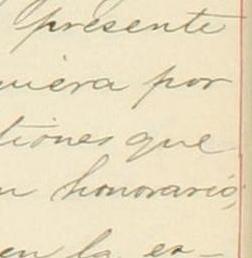 presente
uiera por
tiones que
n honorario,
en la es-